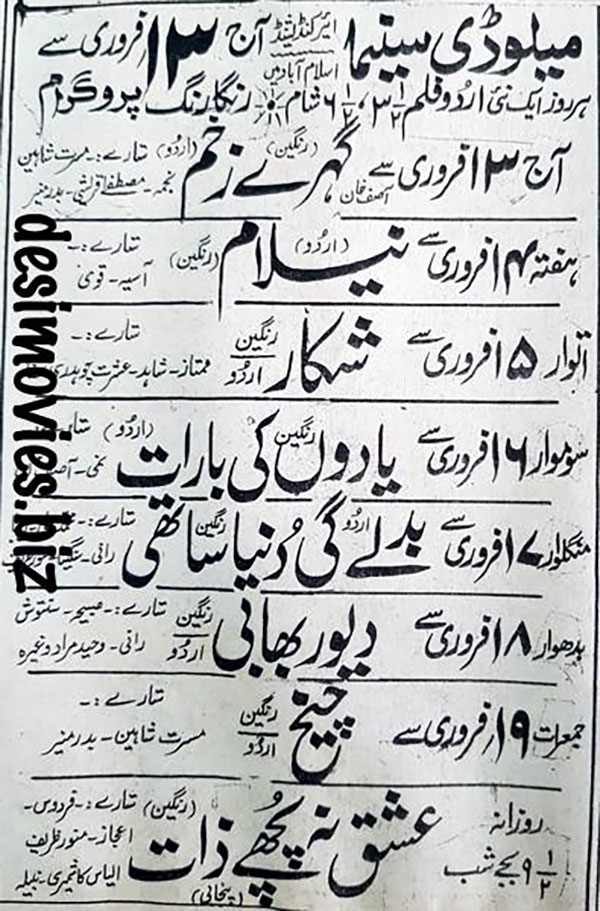 میلوڈی سینما ایرکنڈیشنڈ اسلام آباد میں آج ۱۳ فروری سے
ہر روز ایک نئی اُردو فلم ۳½، ۶½ شام رنگا رنگ پروگرام
آج ۱۳ فروری سے آصف خان گہرے زخم (رنگین) (اُردو) ستارے:۔ مسرت شاہین
نجمہ۔ مصطفےٰ قریشی۔ بدر منیر
ہفتہ ۱۴ فروری سے نیلام (اُردو) (رنگین) ستارے:۔
آسیہ۔ قوی
اتوار ۱۵ فروری سے شکار رنگین اُردو ستارے:۔
ممتاز۔ شاہد۔ عشرت چوہدری
سوموار ۱۶ فروری سے یادوں کی بارات رنگین (اُردو)
نمی۔
منگلوار ۱۷ فروری سے بدلے گی دُنیا ساتھی اُردو رنگین ستارے:۔
رانی۔
بدھوار ۱۸ فروری سے دیور بھابی رنگین اُردو ستارے:۔ صبیحہ۔ سنتوش
رانی۔ وحید مراد وغیرہ
جمعرات ۱۹ فروری سے چیخ رنگین اُردو ستارے:۔
مسرت شاہین۔ بدر منیر
روزانہ ۹½ بجے شب عشق نہ پُچھے ذات (رنگین) (پنجابی) ستارے:۔ فردوس۔
اعجاز۔ منور ظریف
الیاس کاشمیری۔ نبیلہ
desimovies.biz